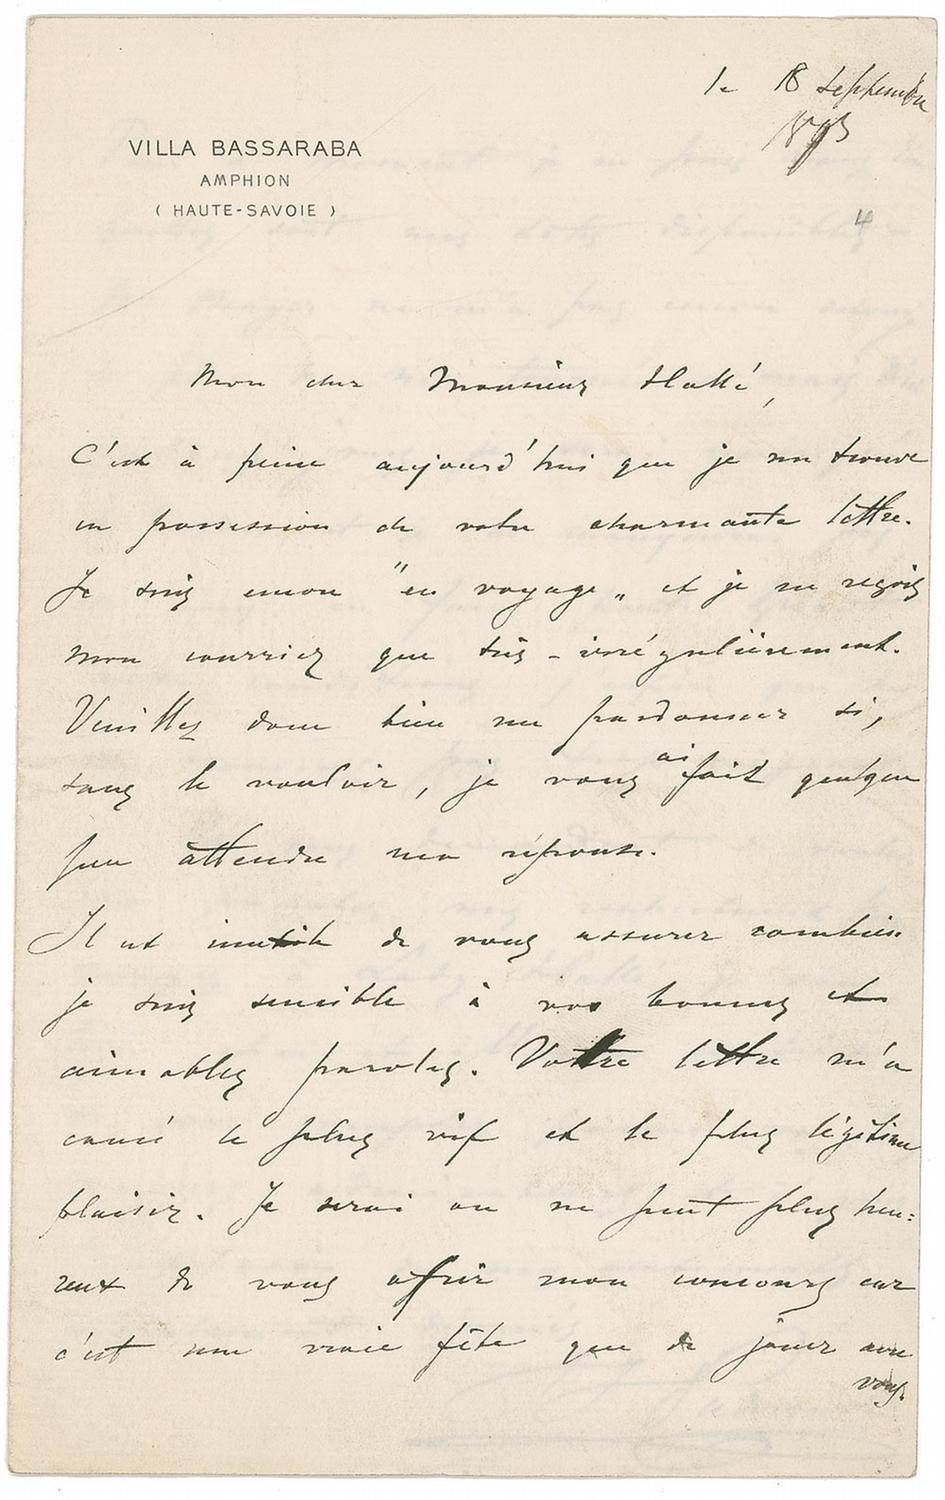 le 18 septembre
1893
VILLA BASSARABA
AMPHION
( HAUTE-SAVOIE )
4
Mon cher Monsieur Hallé,
C'est à peine aujourd'hui que je me trouve
en possession de votre charmante lettre.
Je suis encore "en voyage„ et je ne reçois
mon courrier que très-irrégulièrement.
Veuillez donc bien me pardonner si,
sans le vouloir, je vous ai fait quelque
peu attendre ma réponse.
Il est inutile de vous assurer combien
je suis sensible à vos bonnes et
aimables paroles. Votre lettre m'a
causé le plus vif et le plus légitime
plaisir. Je serai on ne peut plus heu=
reux de vous offrir mon concours car
c'est une vraie fête que de jouer avec
vous.